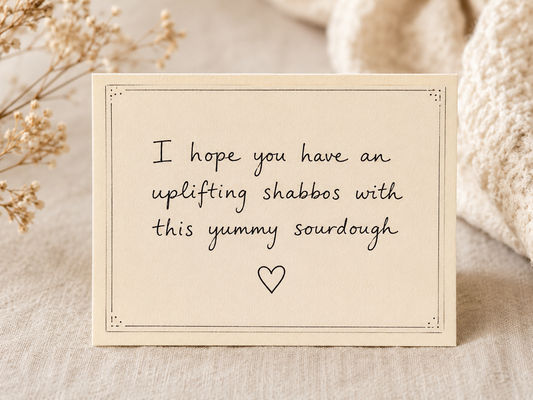 I hope you have an
uplifting shabbos with
this yummy sourdough